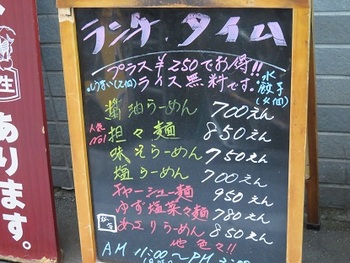 ランチ タイム
プラス¥250でお得!!
ライス無料です。
水餃子
醤油らーめん 700えん
人気No1
担々麺 850えん
味そらーめん 750えん
塩らーめん 700えん
チャーシュー麺 950えん
ゆず塩菜々麺 780えん
らーめん 850えん
他 色々!!
AM 11:00~PM
生
あります。